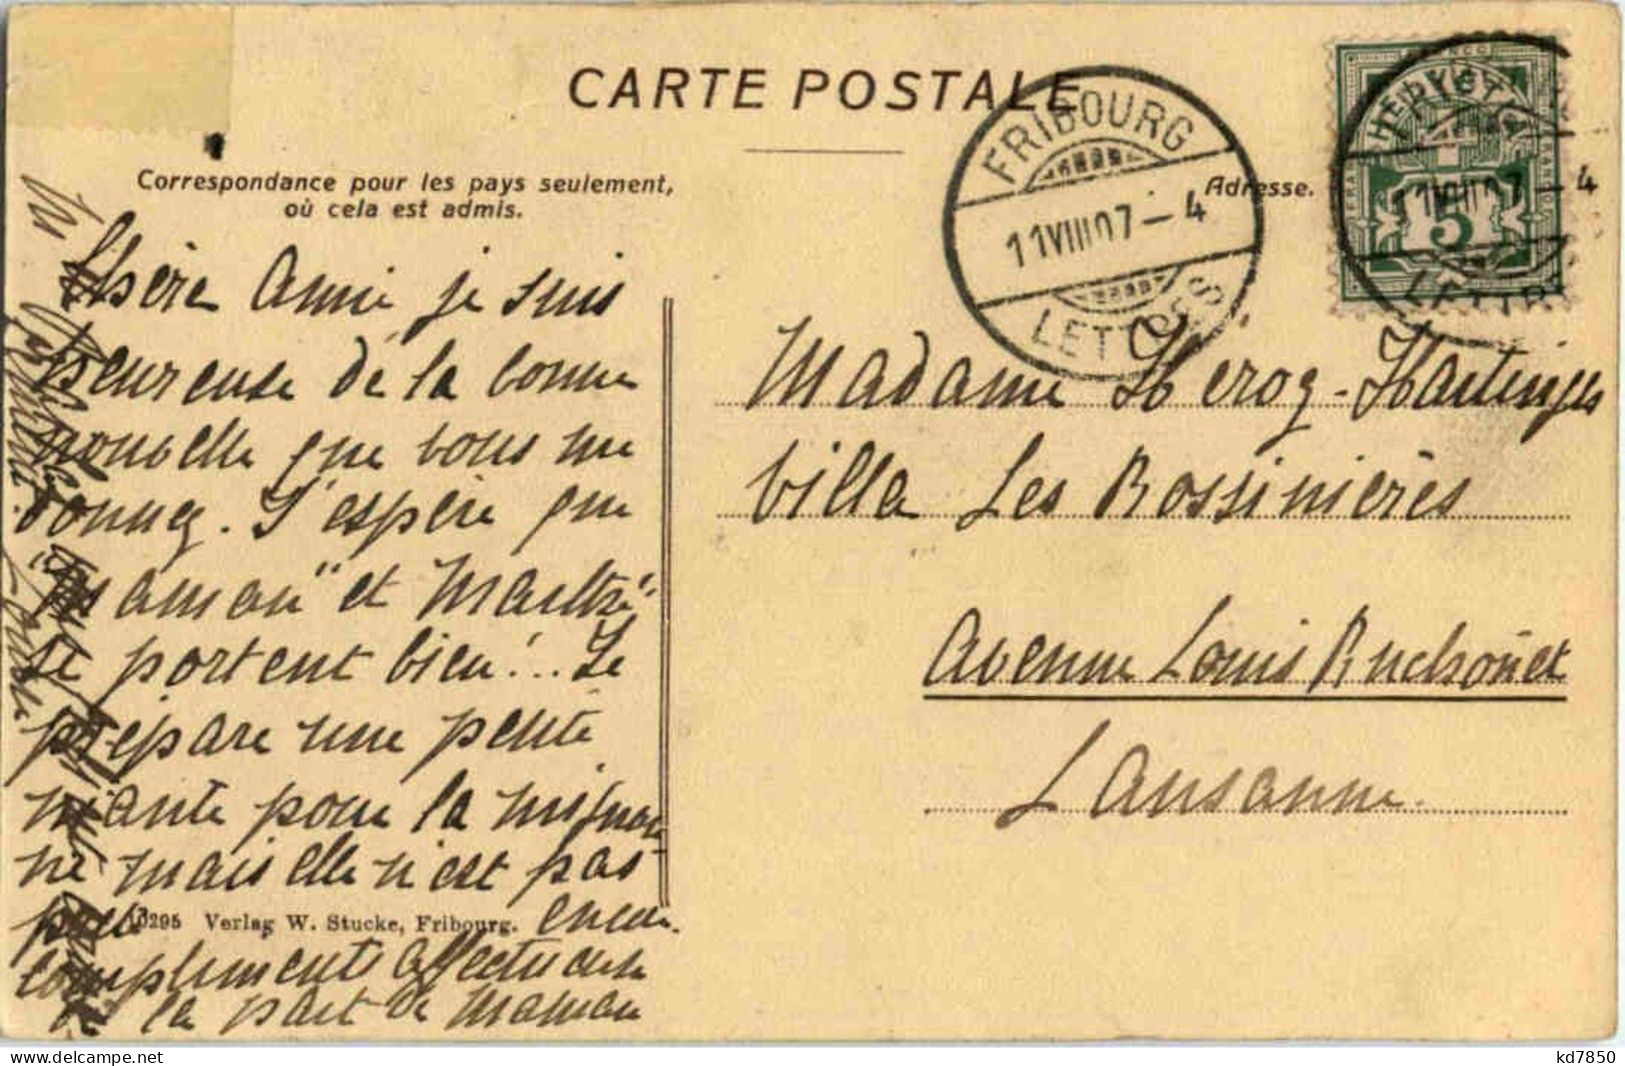 CARTE POSTALE
Correspondance pour les pays seulement,
où cela est admis.
Adresse.
FRIBOURG
11 VIII 07 - 4
LETTRES
11 VIII 07 - 4
5
Chère Amie je suis
heureuse de la bonne
nouvelle que vous me
donnez. J'espère que
"Maman" et
se portent bien!.. Je
prépare une petite
pour la mignon
ne mais elle n'est pas
encore.
compliments affectueux
de la part de Maman
10295 Verlag W. Stucke, Fribourg.
Madame Hérog-Hartinger
Villa Les Rossinières
Avenue Louis Ruchonet
Lausanne.
kd7850